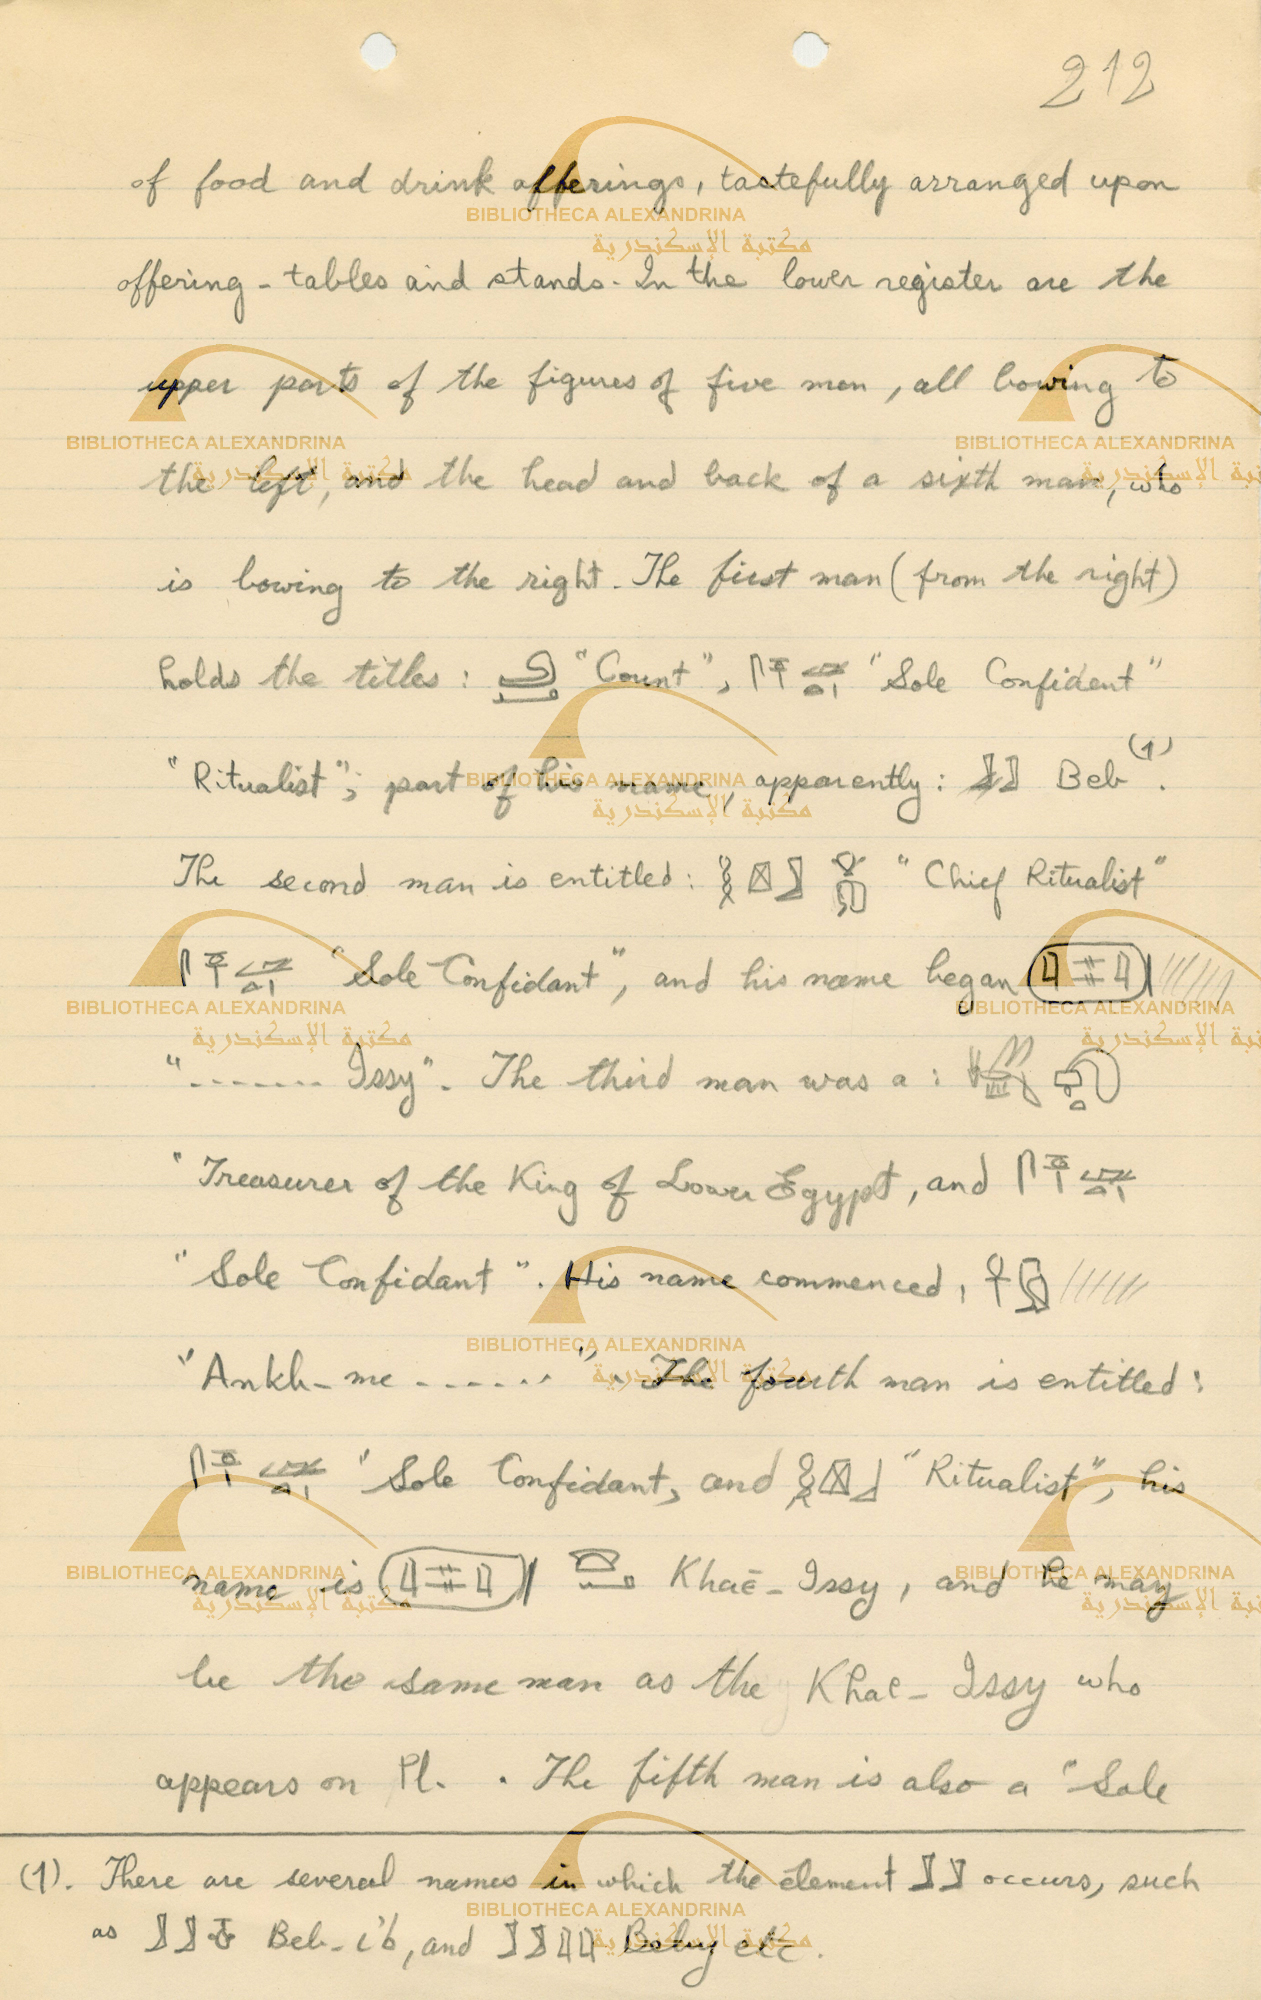 212
of food and drink offerings, tastefully arranged upon
offering-tables and stands. In the lower register are the
upper parts of the figures of five men, all bowing to
the left, and the head and back of a sixth man, who
is bowing to the right. The first man (from the right)
holds the titles: "Count", "Sole Confident"
"Ritualist"; part of his name, apparently: Beb (1).
The second man is entitled: "Chief Ritualist"
"Sole Confidant", and his name began
"------- Issy". The third man was a:
"Treasurer of the King of Lower Egypt, and
"Sole Confidant". His name commenced,
"Ankh-me ------". The fourth man is entitled:
"Sole Confidant, and "Ritualist", his
name is Khaē-Issy, and he may
be the same man as the Khae-Issy who
appears on Pl. . The fifth man is also a "Sole
(1). There are several names in which the element occurs, such
as Beb-ib, and Beby etc.
BIBLIOTHECA ALEXANDRINA
مكتبة الإسكندرية